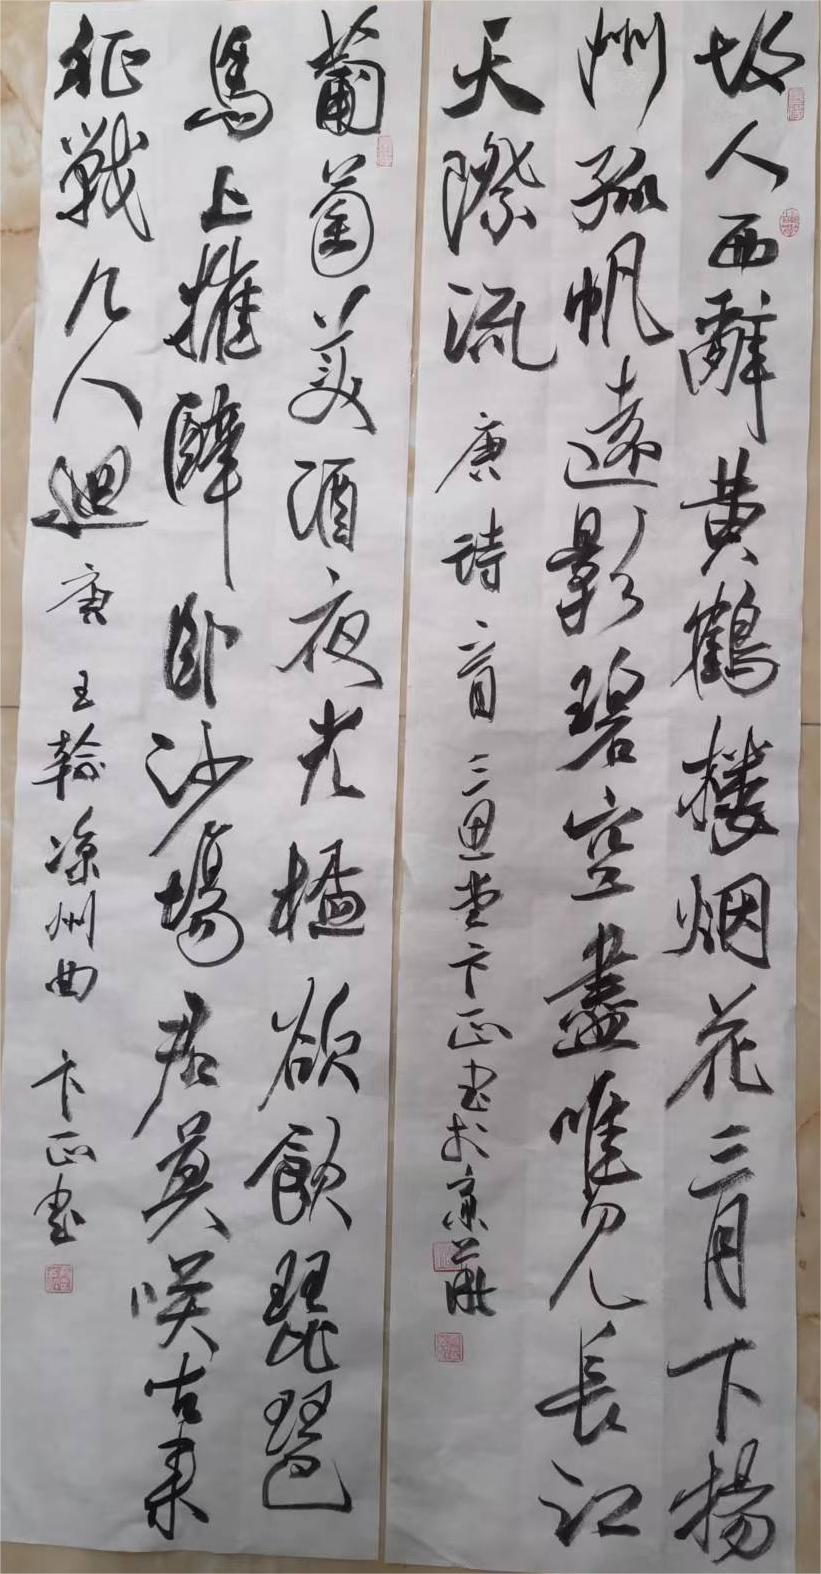 故人西辭黄鶴楼烟花三月下揚
州孤帆遠影碧空盡唯見長江
天際流 唐詩一首 三思堂卞正书於京華
葡萄美酒夜光杯欲飲琵琶
馬上摧醉卧沙場君莫咲古来
征戰几人迴 唐 王翰凉州曲 卞正书